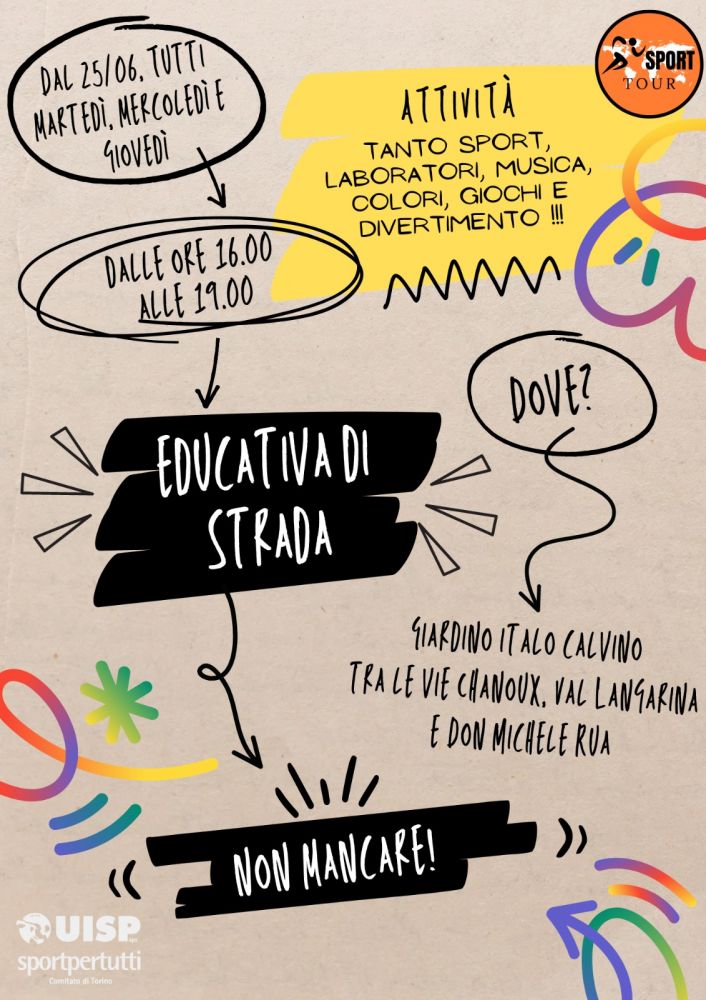 DAL 25/06, TUTTI
MARTEDÌ, MERCOLEDÌ E
GIOVEDÌ
DALLE ORE 16.00
ALLE 19.00
SPORT
TOUR
ATTIVITÀ
TANTO SPORT,
LABORATORI, MUSICA,
COLORI, GIOCHI E
DIVERTIMENTO !!!
EDUCATIVA DI
STRADA
DOVE?
GIARDINO ITALO CALVINO
TRA LE VIE CHANOUX, VAL LANGARINA
E DON MICHELE RUA
NON MANCARE!
UISP
sportpertutti
Comitato di Torino